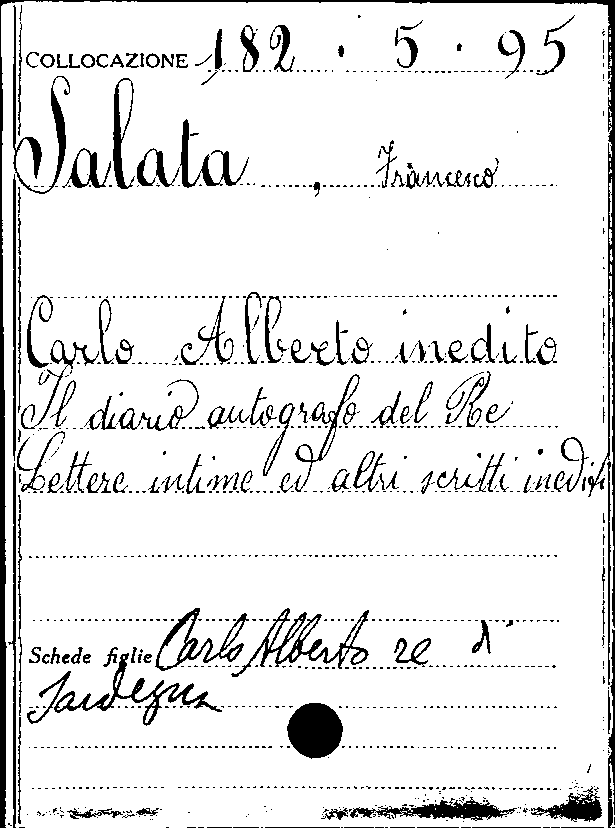 COLLOCAZIONE 182 · 5 · 95
Salata, Francesco
Carlo Alberto inedito
Il diario autografo del Re
Lettere intime ed altri scritti inediti
Schede figlie Carlo Alberto re d'
Sardegna